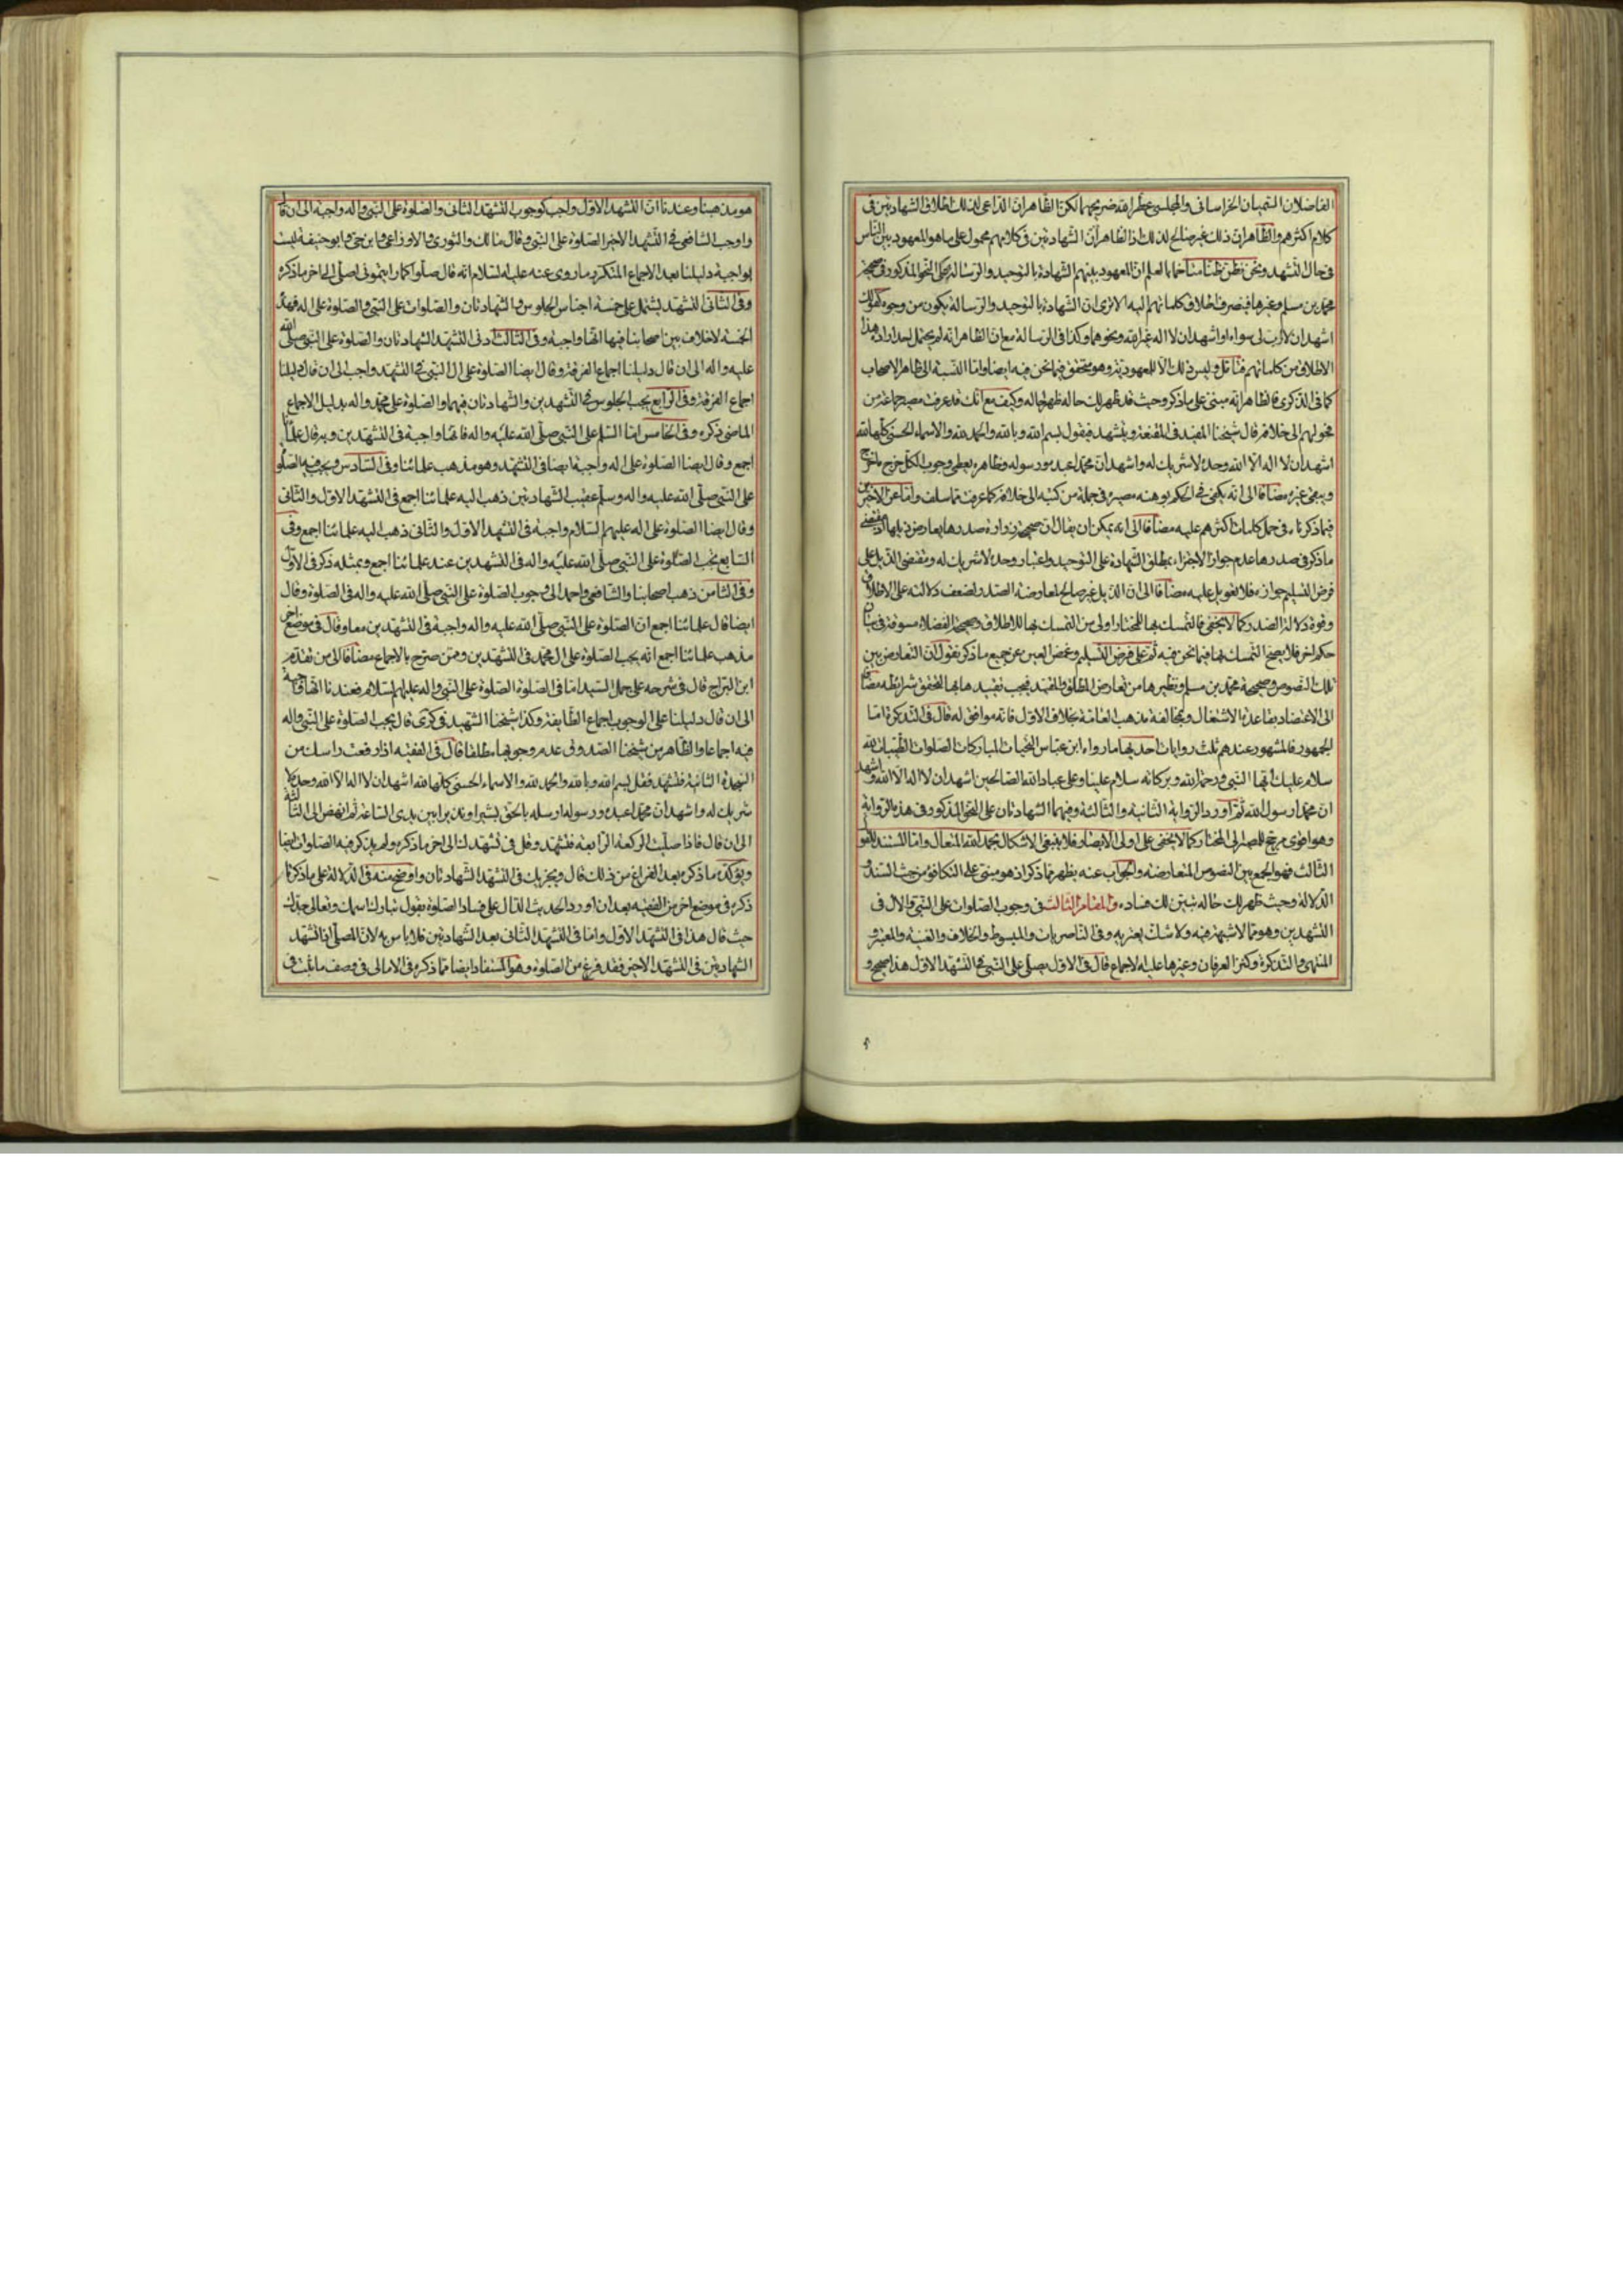 الفاضلان النحيبان الخراساني والمجلسي عطر الله ضريحهما لكن الظاهر ان الداعي لذلك اطلاق الشهادتين في
كلام اكثرهم والظاهر ان ذلك غير صالح لذلك اذ الظاهر ان الشهادتين في كلامهم محمول على ما هو المعهود بين الناس
في حال التشهد ونحن نظن ظنا متاخما بالعلم ان المعهود بينهم الشهادة بالتوحيد والرسالة على النحو المذكور في صحيح
محمد بن مسلم وغيرها فينصرف اطلاق كلماتهم اليه الا ترى ان الشهادة بالتوحيد والرسالة يكون من وجوه كقولك
اشهد ان لا رب لي سواه او اشهد ان لا اله غير الله ونحوهما وكذا في الرسالة مع ان الظاهر انه لم يحتمل احد ارادة هذا
الاطلاق من كلماتهم فتأمل وليس ذلك الا للمعهودية وهو متحقق فيما نحن فيه ايضا واما النسبة الى ظاهر الاصحاب
كما في الذكرى فالظاهر انه مبني على ما ذكر وحيث قد ظهر لك حاله ظهر حاله وكيف مع انك قد عرفت مصير جماعة من
فحولهم الى خلافه قال شيخنا المفيد في المقنعة ويتشهد فيقول بسم الله وبالله والحمد لله والاسماء الحسنى كلها لله
اشهد ان لا اله الا الله وحده لا شريك له واشهد ان محمدا عبده ورسوله وظاهره يعطي وجوب الكل خرج ما خرج
وبقي غيره مضافا الى انه يكفي في الحكم بوهنه مصيره في جملة من كتبه الى خلافه كما عرفت مما سلف واما عن الاخير
فبما ذكرناه في حمل كلمات اكثرهم عليه مضافا الى انه يمكن ان يقال ان صحيح زرارة صدرها يعارض ذيلها اذ مقتضى
ما ذكر في صدرها عدم جواز الاجتزاء بمطلق الشهادة على التوحيد واعتبار وحده لا شريك له ومقتضى الذيل على
فرض التسليم جوازه فلا تعويل عليه مضافا الى ان الذيل غير صالح لمعارضة الصدر لضعف دلالته على الاطلاق
وقوة دلالة الصدر كما لا يخفى فالتمسك بها للمختار اولى من التمسك بها للاطلاق وصحيح الفضلاء مسوقة في بيان
حكم اخر فلا يصح التمسك بها فيما نحن فيه ثم على فرض التسليم وغمض العين عن جميع ما ذكر نقول ان التعارض بين
تلك النصوص وصحيحة محمد بن مسلم ونظيرها من تعارض المطلق والمقيد فيجب تقييدها بها لتحقق شرائطه مضافا
الى الاعتضاد بقاعدة الاشتغال ومخالفة مذهب العامة بخلاف الاول فانه موافق له قال في التذكرة اما
الجمهور فالمشهور عندهم ثلث روايات احديها ما رواه ابن عباس التحيات المباركات الصلوات الطيبات لله
سلام عليك ايها النبي ورحمة الله وبركاته سلام علينا وعلى عباد الله الصالحين اشهد ان لا اله الا الله واشهد
ان محمدا رسول الله ثم اورد الرواية الثانية والثالثة وفيهما الشهادتان على النحو المذكور في هذه الرواية
وهو اقوى مرجح للمصير الى المختار كما لا يخفى على اولى الابصار فلا ينبغي الاشكال بحمد الله المتعال واما المستند للقول
الثالث فهو الجمع بين النصوص المتعارضة والجواب عنه يظهر مما ذكر اذ هو مبني على التكافؤ من حيث السند و
الدلالة وحيث ظهر لك حاله تبين لك فساده والمقام الثالث في وجوب الصلوات على النبي والال في
التشهدين وهو مما لا شبهة فيه ولا شك يعتريه وفي الناصريات والمبسوط والخلاف والغنية والمعتبر و
المنتهى والتذكرة وكنز العرفان وغيرها عليه الاجماع قال في الاول يصلى على النبي في التشهد الاول هذا صحيح و
هو مذهبنا وعندنا ان التشهد الاول واجب كوجوب التشهد الثاني والصلوة على النبي واله واجبة الى ان قال
واوجب الشافعي في التشهد الاخير الصلوة على النبي وقال مالك والثوري والاوزاعي وابن حي وابو حنيفة ليست
بواجبة دليلنا بعد الاجماع المتكرر ما روي عنه عليه السلام انه قال صلوا كما رايتموني اصلي الى اخر ما ذكره
وفي الثاني التشهد يشتمل على خمسة اجناس الجلوس والشهادتان والصلوات على النبي والصلوة على اله فهذه
الخمسة لا خلاف بين اصحابنا فيها انها واجبة وفي الثالث ادنى التشهد الشهادتان والصلوة على النبي صلى الله
عليه واله الى ان قال دليلنا اجماع الفرقة وقال ايضا الصلوة على ال النبي في التشهد واجب الى ان قال دليلنا
اجماع الفرقة وفي الرابع يجب الجلوس في التشهدين والشهادتان فيهما والصلوة على محمد واله بدليل الاجماع
الماضي ذكره وفي الخامس اما الصلوة على النبي صلى الله عليه واله فانها واجبة في التشهدين وبه قال علماؤنا
اجمع وقال ايضا الصلوة على اله واجبة ايضا في التشهد وهو مذهب علمائنا وفي السادس ويجب فيه الصلوة
على النبي صلى الله عليه واله وسلم عقيب الشهادتين ذهب اليه علمائنا اجمع في التشهد الاول والثاني
وقال ايضا الصلوة على اله عليهم السلام واجبة في التشهد الاول والثاني ذهب اليه علمائنا اجمع وفي
السابع تجب الصلوة على النبي صلى الله عليه واله في التشهدين عند علمائنا اجمع وبمثله ذكر في الاول
وفي الثامن ذهب اصحابنا والشافعي واحمد الى وجوب الصلوة على النبي صلى الله عليه واله في الصلوة وقال
ايضا قال علمائنا اجمع ان الصلوة على النبي صلى الله عليه واله واجبة في التشهدين معا وقال في موضع اخر
مذهب علمائنا اجمع انه يجب الصلوة على ال محمد في التشهدين وممن صرح بالاجماع مضافا الى من تقدم
ابن البراج قال في شرحه على جمل السيد اما في الصلوة الصلوة على النبي واله عليهم السلام فعندنا انها واجبة
الى ان قال دليلنا على الوجوب اجماع الطائفة وكذا شيخنا الشهيد في كرى قال يجب الصلوة على النبي واله
فيه اجماعا والظاهر من شيخنا الصدوق عدم وجوبها مطلقا قال في الفقيه اذا رفعت راسك من
السجدة الثانية فتشهد فقل بسم الله وبالله والحمد لله والاسماء الحسنى كلها لله اشهد ان لا اله الا الله وحده لا
شريك له واشهد ان محمدا عبده ورسوله ارسله بالحق بشيرا ونذيرا بين يدي الساعة ثم انهض الى الثالثة
الى ان قال فاذا صليت الركعة الرابعة فتشهد وقل في تشهدك الى اخر ما ذكره ولم يذكر فيه الصلوات ايضا
ويؤكده ما ذكره بعد الفراغ من ذلك قال ويجزيك في التشهد الشهادتان واوضح منه في الدلالة على ما ذكرنا
ذكره في موضع اخر من الفقيه بعد ان اورد الحديث الدال على فساد الصلوة بقول تبارك اسمك وتعالى جدك
حيث قال هذا في التشهد الاول واما في التشهد الثاني بعد الشهادتين فلا باس به لان المصلي اذا تشهد
الشهادتين في التشهد الاخير فقد فرغ من الصلوة وهو المستفاد ايضا مما ذكره في الامالي في وصف ما يثبت في